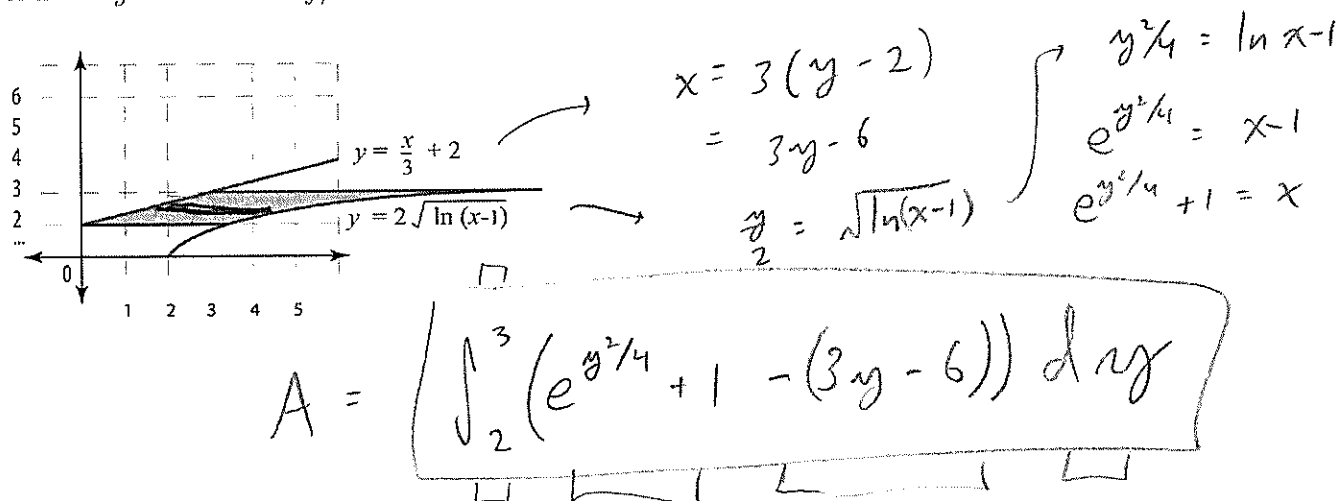 6
5
4
3
2
...
0
1 2 3 4 5
y = x/3 + 2
y = 2√ln (x-1)
x = 3(y - 2)
= 3y - 6
y/2 = √ln(x-1)
y²/4 = ln x-1
e^(y²/4) = x-1
e^(y²/4) + 1 = x
A = ∫₂³ (e^(y²/4) + 1 - (3y - 6)) dy